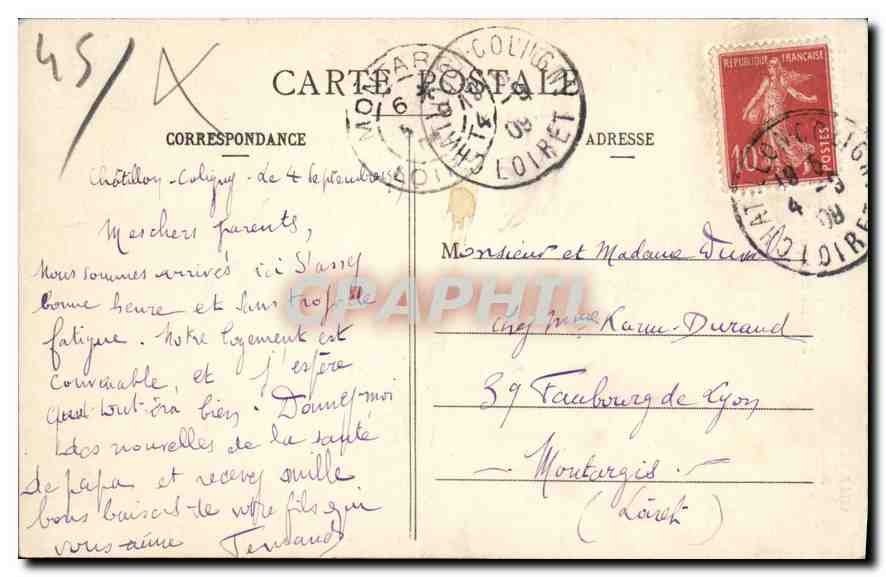 45/
CARTE POSTALE
CORRESPONDANCE
ADRESSE
REPUBLIQUE FRANÇAISE
10
POSTES
MONTARGIS
6
LOIRET
CHATILLON-COLIGNY
09
LOIRET
CHATILLON-COLIGNY
4
09
LOIRET
Châtillon-Coligny - Le 4 Septembre
Mes chers parents,
Nous sommes arrivés ici d'assez
bonne heure et sans trop de
fatigue. Notre logement est
convenable, et j'espère
que tout ira bien. Donnez-moi
des nouvelles de la santé
de papa et recevez mille
bons baisers de votre fils qui
vous aime Fernand
Monsieur et Madame
chez Mme Durand
39 Faubourg de Lyon
- Montargis -
(Loiret)
CPAPHIL